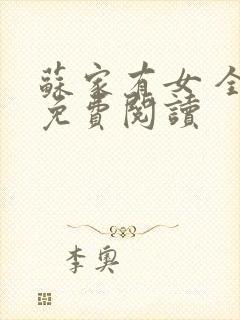 蘇家有女 全
免費閱讀
李奧